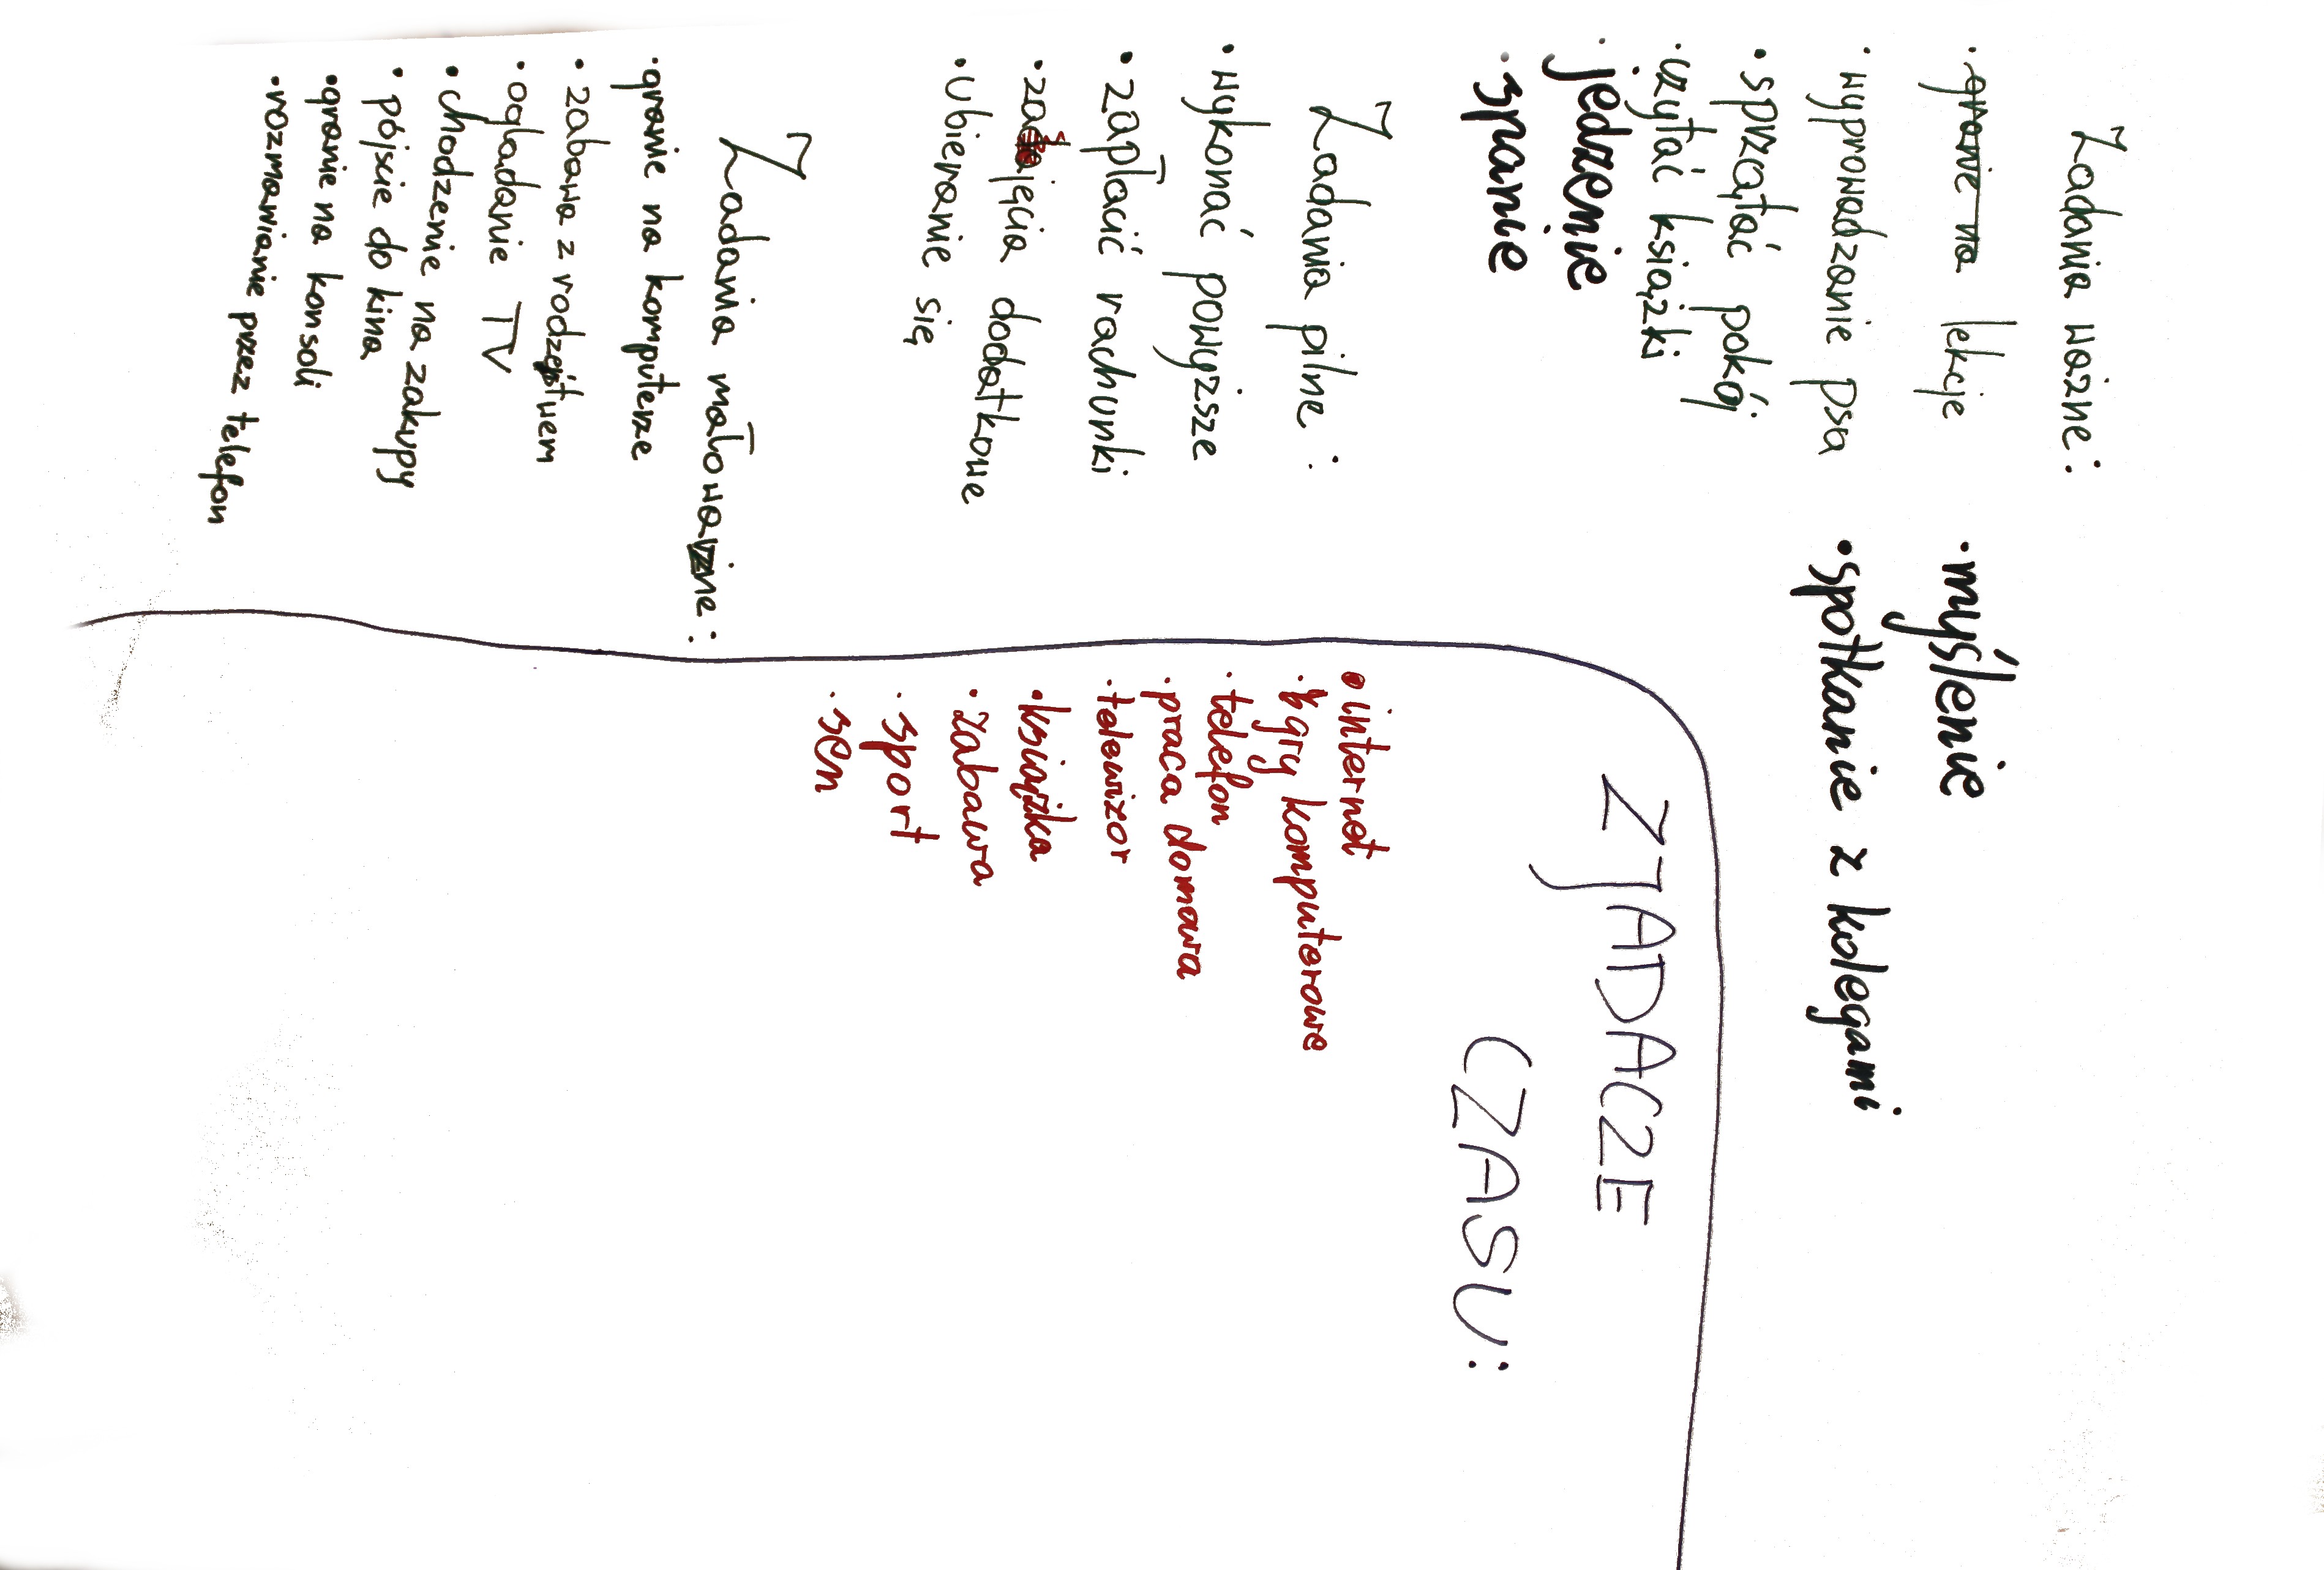 Zadania ważne:
• granie na lekcje
• wyprowadzanie psa
• sprzątać pokój
• czytać książki
• jedzenie
• spanie
• myślenie
• spotkanie z kolegami
Zadania pilne:
• wykonać powyższe
• zapłacić rachunki
• zajęcia dodatkowe
• Ubieranie się
Zadania mało ważne:
• granie na komputerze
• zabawa z rodzeństwem
• oglądanie TV
• chodzenie na zakupy
• pójście do kina
• granie na konsoli
• rozmawianie przez telefon
ZJADACZE
CZASU:
• internet
• gry komputerowe
• telefon
• praca domowa
• telewizor
• książka
• zabawa
• sport
• sen